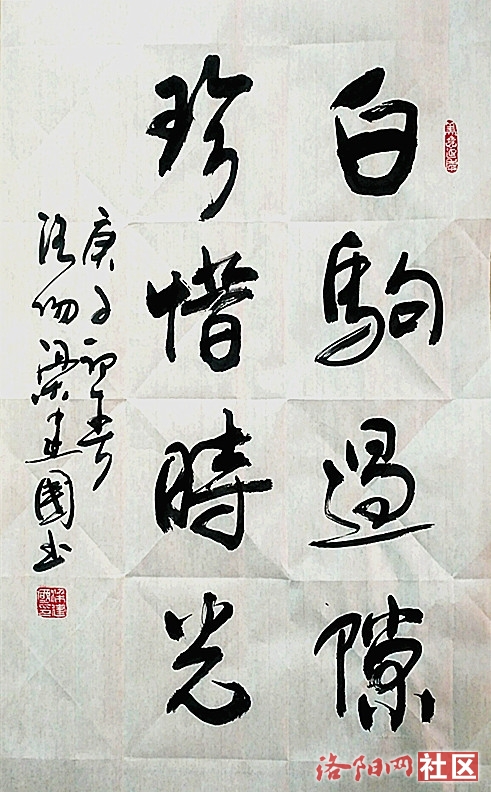 白駒過隙
珍惜時光
庚子初春
洛陽梁建國書
梁建國印
洛阳网社区